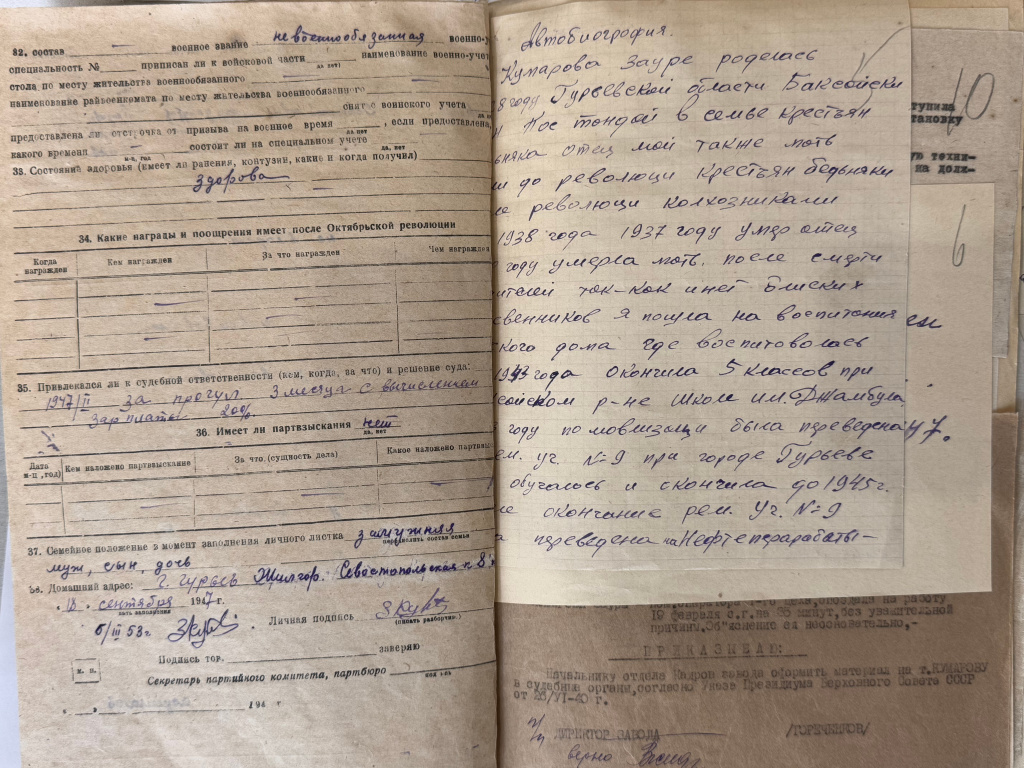 32. состав — военное звание невоеннообязанная военно-у
специальность № приписан ли к войсковой части наименование военно-учет
да нет)
стола по месту жительства военнообязанного
наименование райвоенкомата по месту жительства военнообязанного
снят с воинского учета
да не
предоставлена ли отстрочка от призыва на военное время , если предоставлена
да нет
какого времени состоит ли на специальном учете
м-ц, год да, нет
33. Состояний здоровья (имеет ли ранения, контузии, какие и когда получил)
здорова
34. Какие награды и поощрения имеет после Октябрьской революции
Когда награжден Кем награжден За что награжден Чем награжден
35. Привлекался ли к судебной ответственности (кем, когда, за что) и решение суда:
1947/II за прогул 3 месяца с вычислением
Зарплаты 20%.
36. Имеет ли партвзыскания нет
да, нет
Дата м-ц, год) Кем наложено партвзыскание За что (сущность дела) Какое наложено партвзы
37. Семейное положение в момент заполнения личного листка замужняя
перечислить состав семьи
муж, сын, дочь
38. Домашний адрес: г. Гурьев Жилгор. Севостопольская 8
" 18 " сентября 1947 г.
дата заполнения
6/III 53 г. Личная подпись
(писать разборчиво)
Подпись тов. заверяю
М. П.
Секретарь партийного комитета, партбюро
" " 194 г
Автобиография.
Кумарова Зауре роделась
8 году Гурьевской области Баксайски
Костондой в семье крестьян
ьняка отец мой также моть
ли до революци крестьян бедьняки
ле революци колхозниками
1938 года 1937 году умер отец
году умерла моть. после смерти
ителей так-как инет блиских
ственников я пошла на воспитания
ского дома где воспитоволась
1943 года окончила 5 классов при
сайском р-не школ им. Джамбула
году по мовлизаци была переведена
ем. уч. №9 при городе Гурьеве
обучалось и скончила до 1945 г.
ле окончание рем. Уч. №9
а переведена на Нефтеперерабаты-
47.
10
тупила
тановку
ую техни-
на долж-
6
работу
19 февраля с.г. на 35 минут, без уважительной
причины. Об'яснение ея неосновательно,-
ПРИКАЗЫВАЮ:
Начальнику отдела Кадров завода оформить материал на т.КУМАРОВУ
в судебные органы, согласно Указа Президиума Верховного Совета СССР
от 26/VI-40 г.
п/п ДИРЕКТОР ЗАВОДА /ТОРЕЧЕНКОВ/
верно